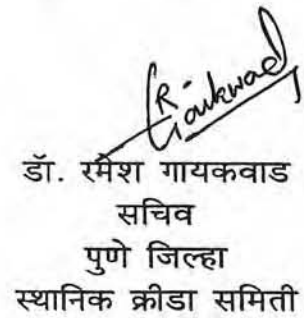 R Gaikwad
डॉ. रमेश गायकवाड
सचिव
पुणे जिल्हा
स्थानिक क्रीडा समिती